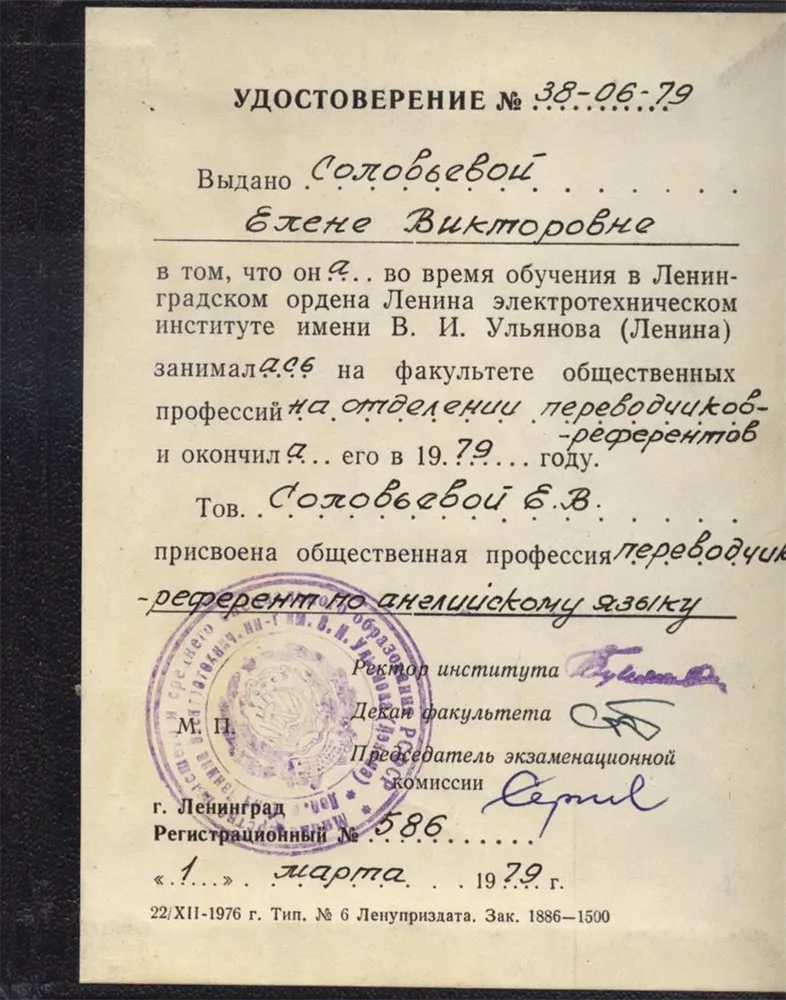 УДОСТОВЕРЕНИЕ № 38-06-79
Выдано Соловьевой
Елене Викторовне
в том, что она... во время обучения в Ленин-
градском ордена Ленина электротехническом
институте имени В. И. Ульянова (Ленина)
занималась на факультете общественных
профессий на отделении переводчиков-
-референтов
и окончила... его в 1979... году.
Тов. Соловьевой Е.В.
присвоена общественная профессия переводчик
-референт по английскому языку
Ректор института
М. П.
Декан факультета
Председатель экзаменационной
комиссии
г. Ленинград
Регистрационный № 586
«1» марта 1979 г.
22/XII-1976 г. Тип. № 6 Ленуприздата. Зак. 1886—1500